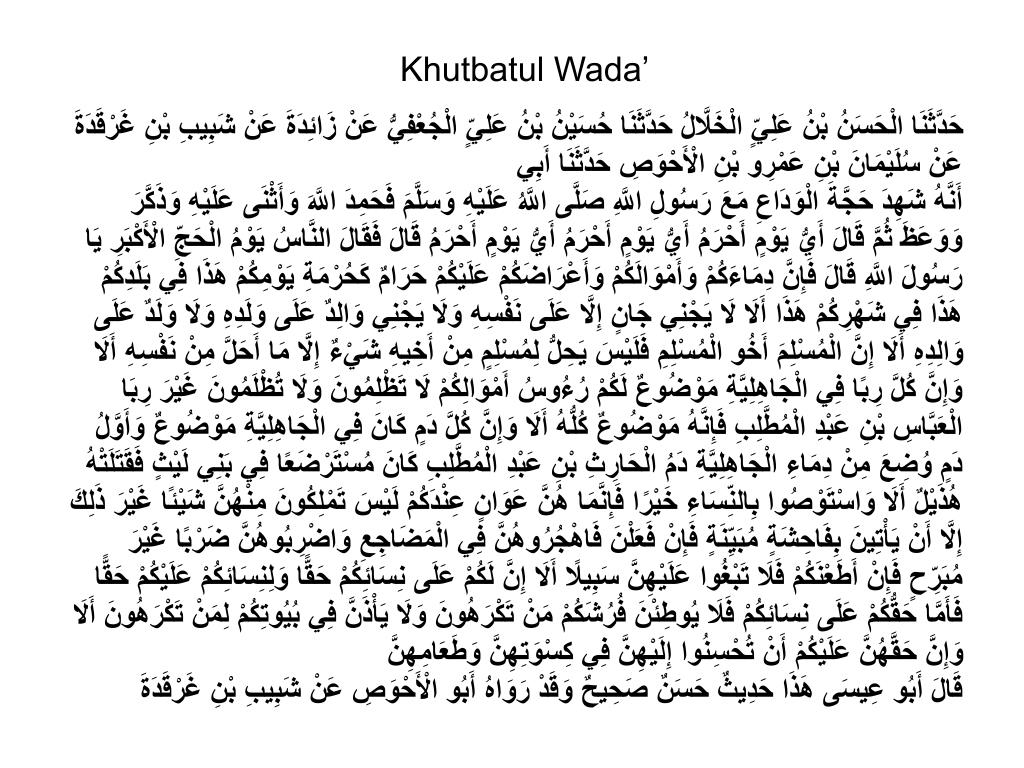 Khutbatul Wada’
حَدَّثَنَا الْحَسَنُ بْنُ عَلِيٍّ الْخَلَّالُ حَدَّثَنَا حُسَيْنُ بْنُ عَلِيٍّ الْجُعْفِيُّ عَنْ زَائِدَةَ عَنْ شَبِيبِ بْنِ غَرْقَدَةَ
عَنْ سُلَيْمَانَ بْنِ عَمْرِو بْنِ الْأَحْوَصِ حَدَّثَنَا أَبِي
أَنَّهُ شَهِدَ حَجَّةَ الْوَدَاعِ مَعَ رَسُولِ اللَّهِ صَلَّى اللَّهُ عَلَيْهِ وَسَلَّمَ فَحَمِدَ اللَّهَ وَأَثْنَى عَلَيْهِ وَذَكَّرَ
وَوَعَظَ ثُمَّ قَالَ أَيُّ يَوْمٍ أَحْرَمُ أَيُّ يَوْمٍ أَحْرَمُ أَيُّ يَوْمٍ أَحْرَمُ قَالَ فَقَالَ النَّاسُ يَوْمُ الْحَجِّ الْأَكْبَرِ يَا
رَسُولَ اللَّهِ قَالَ فَإِنَّ دِمَاءَكُمْ وَأَمْوَالَكُمْ وَأَعْرَاضَكُمْ عَلَيْكُمْ حَرَامٌ كَحُرْمَةِ يَوْمِكُمْ هَذَا فِي بَلَدِكُمْ
هَذَا فِي شَهْرِكُمْ هَذَا أَلَا لَا يَجْنِي جَانٍ إِلَّا عَلَى نَفْسِهِ وَلَا يَجْنِي وَالِدٌ عَلَى وَلَدِهِ وَلَا وَلَدٌ عَلَى
وَالِدِهِ أَلَا إِنَّ الْمُسْلِمَ أَخُو الْمُسْلِمِ فَلَيْسَ يَحِلُّ لِمُسْلِمٍ مِنْ أَخِيهِ شَيْءٌ إِلَّا مَا أَحَلَّ مِنْ نَفْسِهِ أَلَا
وَإِنَّ كُلَّ رِبًا فِي الْجَاهِلِيَّةِ مَوْضُوعٌ لَكُمْ رُءُوسُ أَمْوَالِكُمْ لَا تَظْلِمُونَ وَلَا تُظْلَمُونَ غَيْرَ رِبَا
الْعَبَّاسِ بْنِ عَبْدِ الْمُطَّلِبِ فَإِنَّهُ مَوْضُوعٌ كُلُّهُ أَلَا وَإِنَّ كُلَّ دَمٍ كَانَ فِي الْجَاهِلِيَّةِ مَوْضُوعٌ وَأَوَّلُ
دَمٍ وُضِعَ مِنْ دِمَاءِ الْجَاهِلِيَّةِ دَمُ الْحَارِثِ بْنِ عَبْدِ الْمُطَّلِبِ كَانَ مُسْتَرْضَعًا فِي بَنِي لَيْثٍ فَقَتَلَتْهُ
هُذَيْلٌ أَلَا وَاسْتَوْصُوا بِالنِّسَاءِ خَيْرًا فَإِنَّمَا هُنَّ عَوَانٍ عِنْدَكُمْ لَيْسَ تَمْلِكُونَ مِنْهُنَّ شَيْئًا غَيْرَ ذَلِكَ
إِلَّا أَنْ يَأْتِينَ بِفَاحِشَةٍ مُبَيِّنَةٍ فَإِنْ فَعَلْنَ فَاهْجُرُوهُنَّ فِي الْمَضَاجِعِ وَاضْرِبُوهُنَّ ضَرْبًا غَيْرَ
مُبَرِّحٍ فَإِنْ أَطَعْنَكُمْ فَلَا تَبْغُوا عَلَيْهِنَّ سَبِيلًا أَلَا إِنَّ لَكُمْ عَلَى نِسَائِكُمْ حَقًّا وَلِنِسَائِكُمْ عَلَيْكُمْ حَقًّا
فَأَمَّا حَقُّكُمْ عَلَى نِسَائِكُمْ فَلَا يُوطِئْنَ فُرُشَكُمْ مَنْ تَكْرَهُونَ وَلَا يَأْذَنَّ فِي بُيُوتِكُمْ لِمَنْ تَكْرَهُونَ أَلَا
وَإِنَّ حَقَّهُنَّ عَلَيْكُمْ أَنْ تُحْسِنُوا إِلَيْهِنَّ فِي كِسْوَتِهِنَّ وَطَعَامِهِنَّ
قَالَ أَبُو عِيسَى هَذَا حَدِيثٌ حَسَنٌ صَحِيحٌ وَقَدْ رَوَاهُ أَبُو الْأَحْوَصِ عَنْ شَبِيبِ بْنِ غَرْقَدَةَ